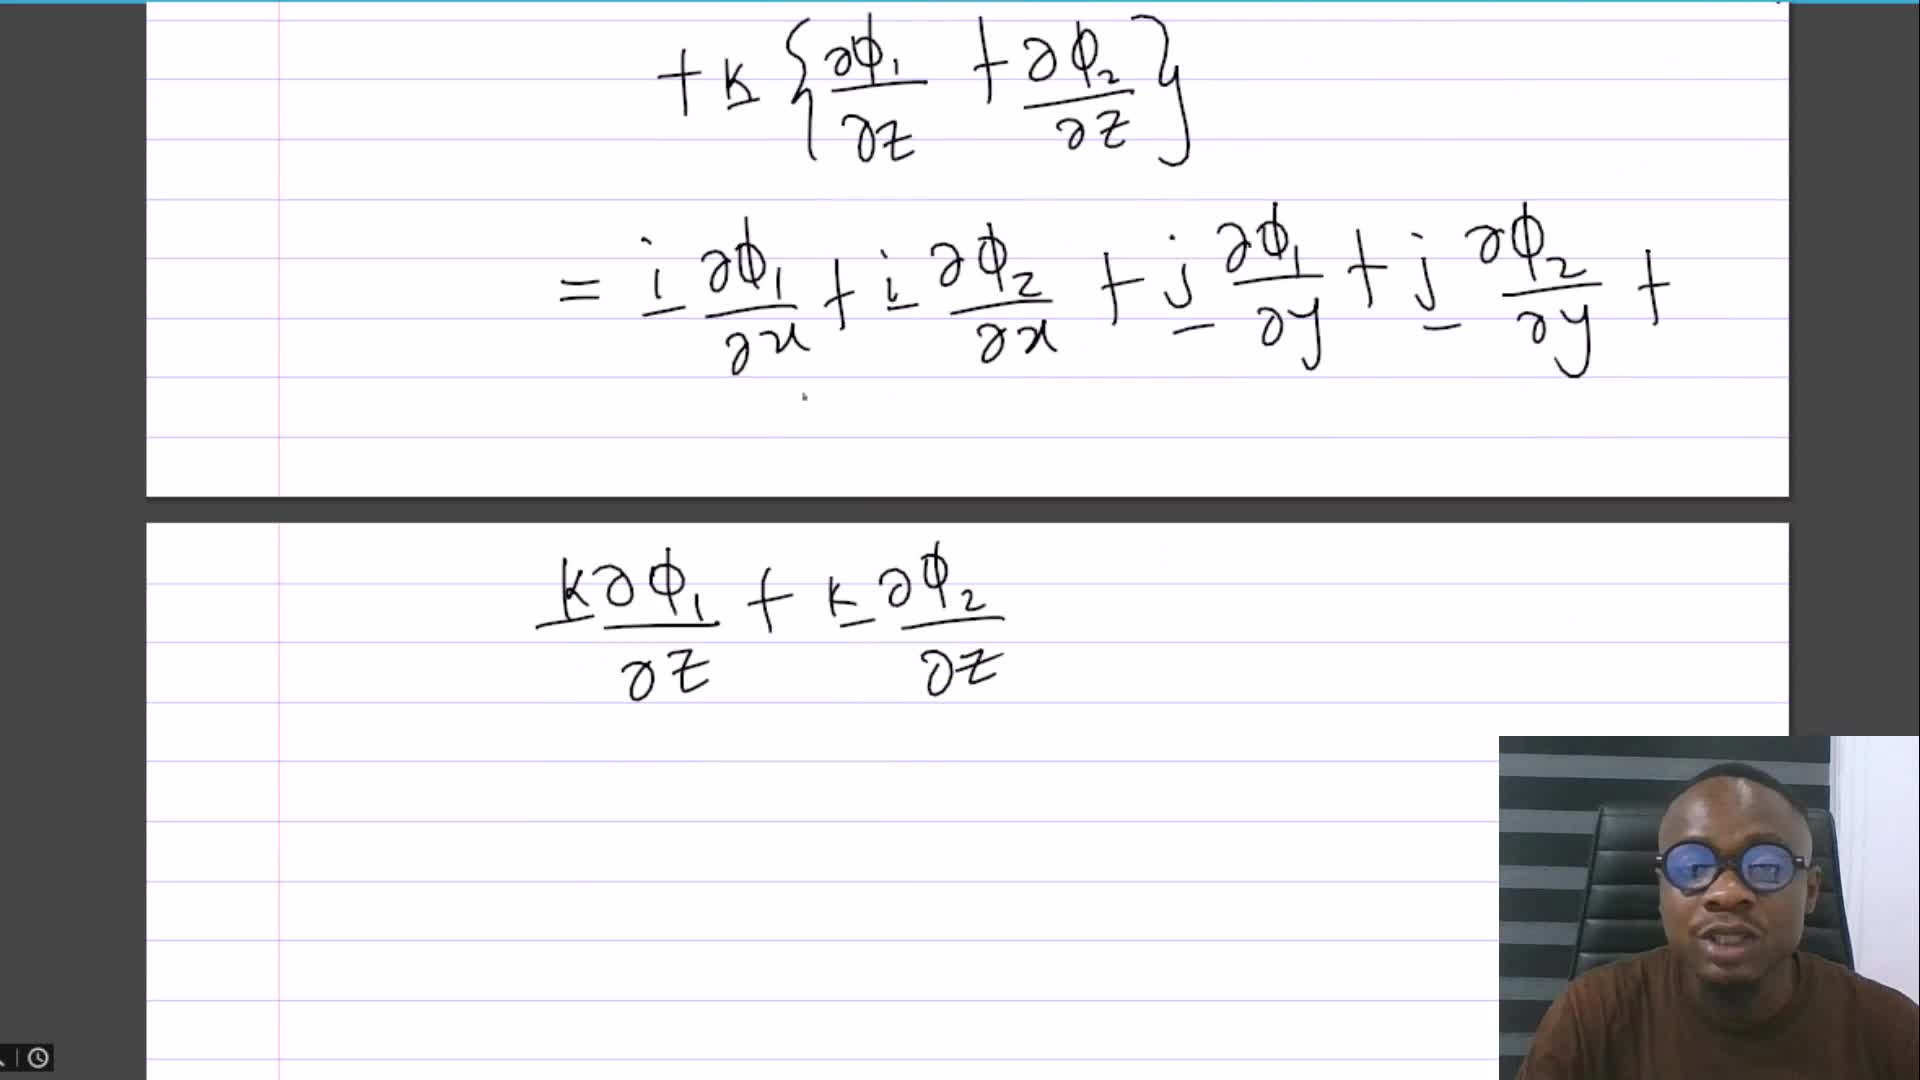 + k {∂ϕ₁/∂z + ∂ϕ₂/∂z}
= i ∂ϕ₁/∂x + i ∂ϕ₂/∂x + j ∂ϕ₁/∂y + j ∂ϕ₂/∂y +
k ∂ϕ₁/∂z + k ∂ϕ₂/∂z